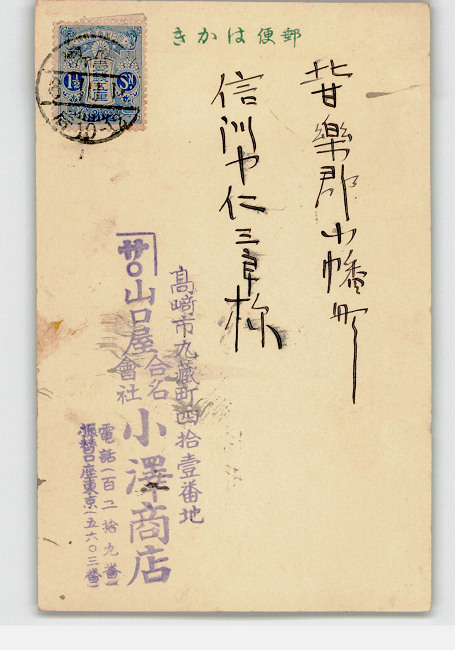 きかは便郵
1½ Sn
甘樂郡小幡町
信川中仁三郎様
高崎市九蔵町四拾壹番地
山口屋
合名
會社
小澤商店
電話(百二拾九番)
振替口座東京(五六〇三番)